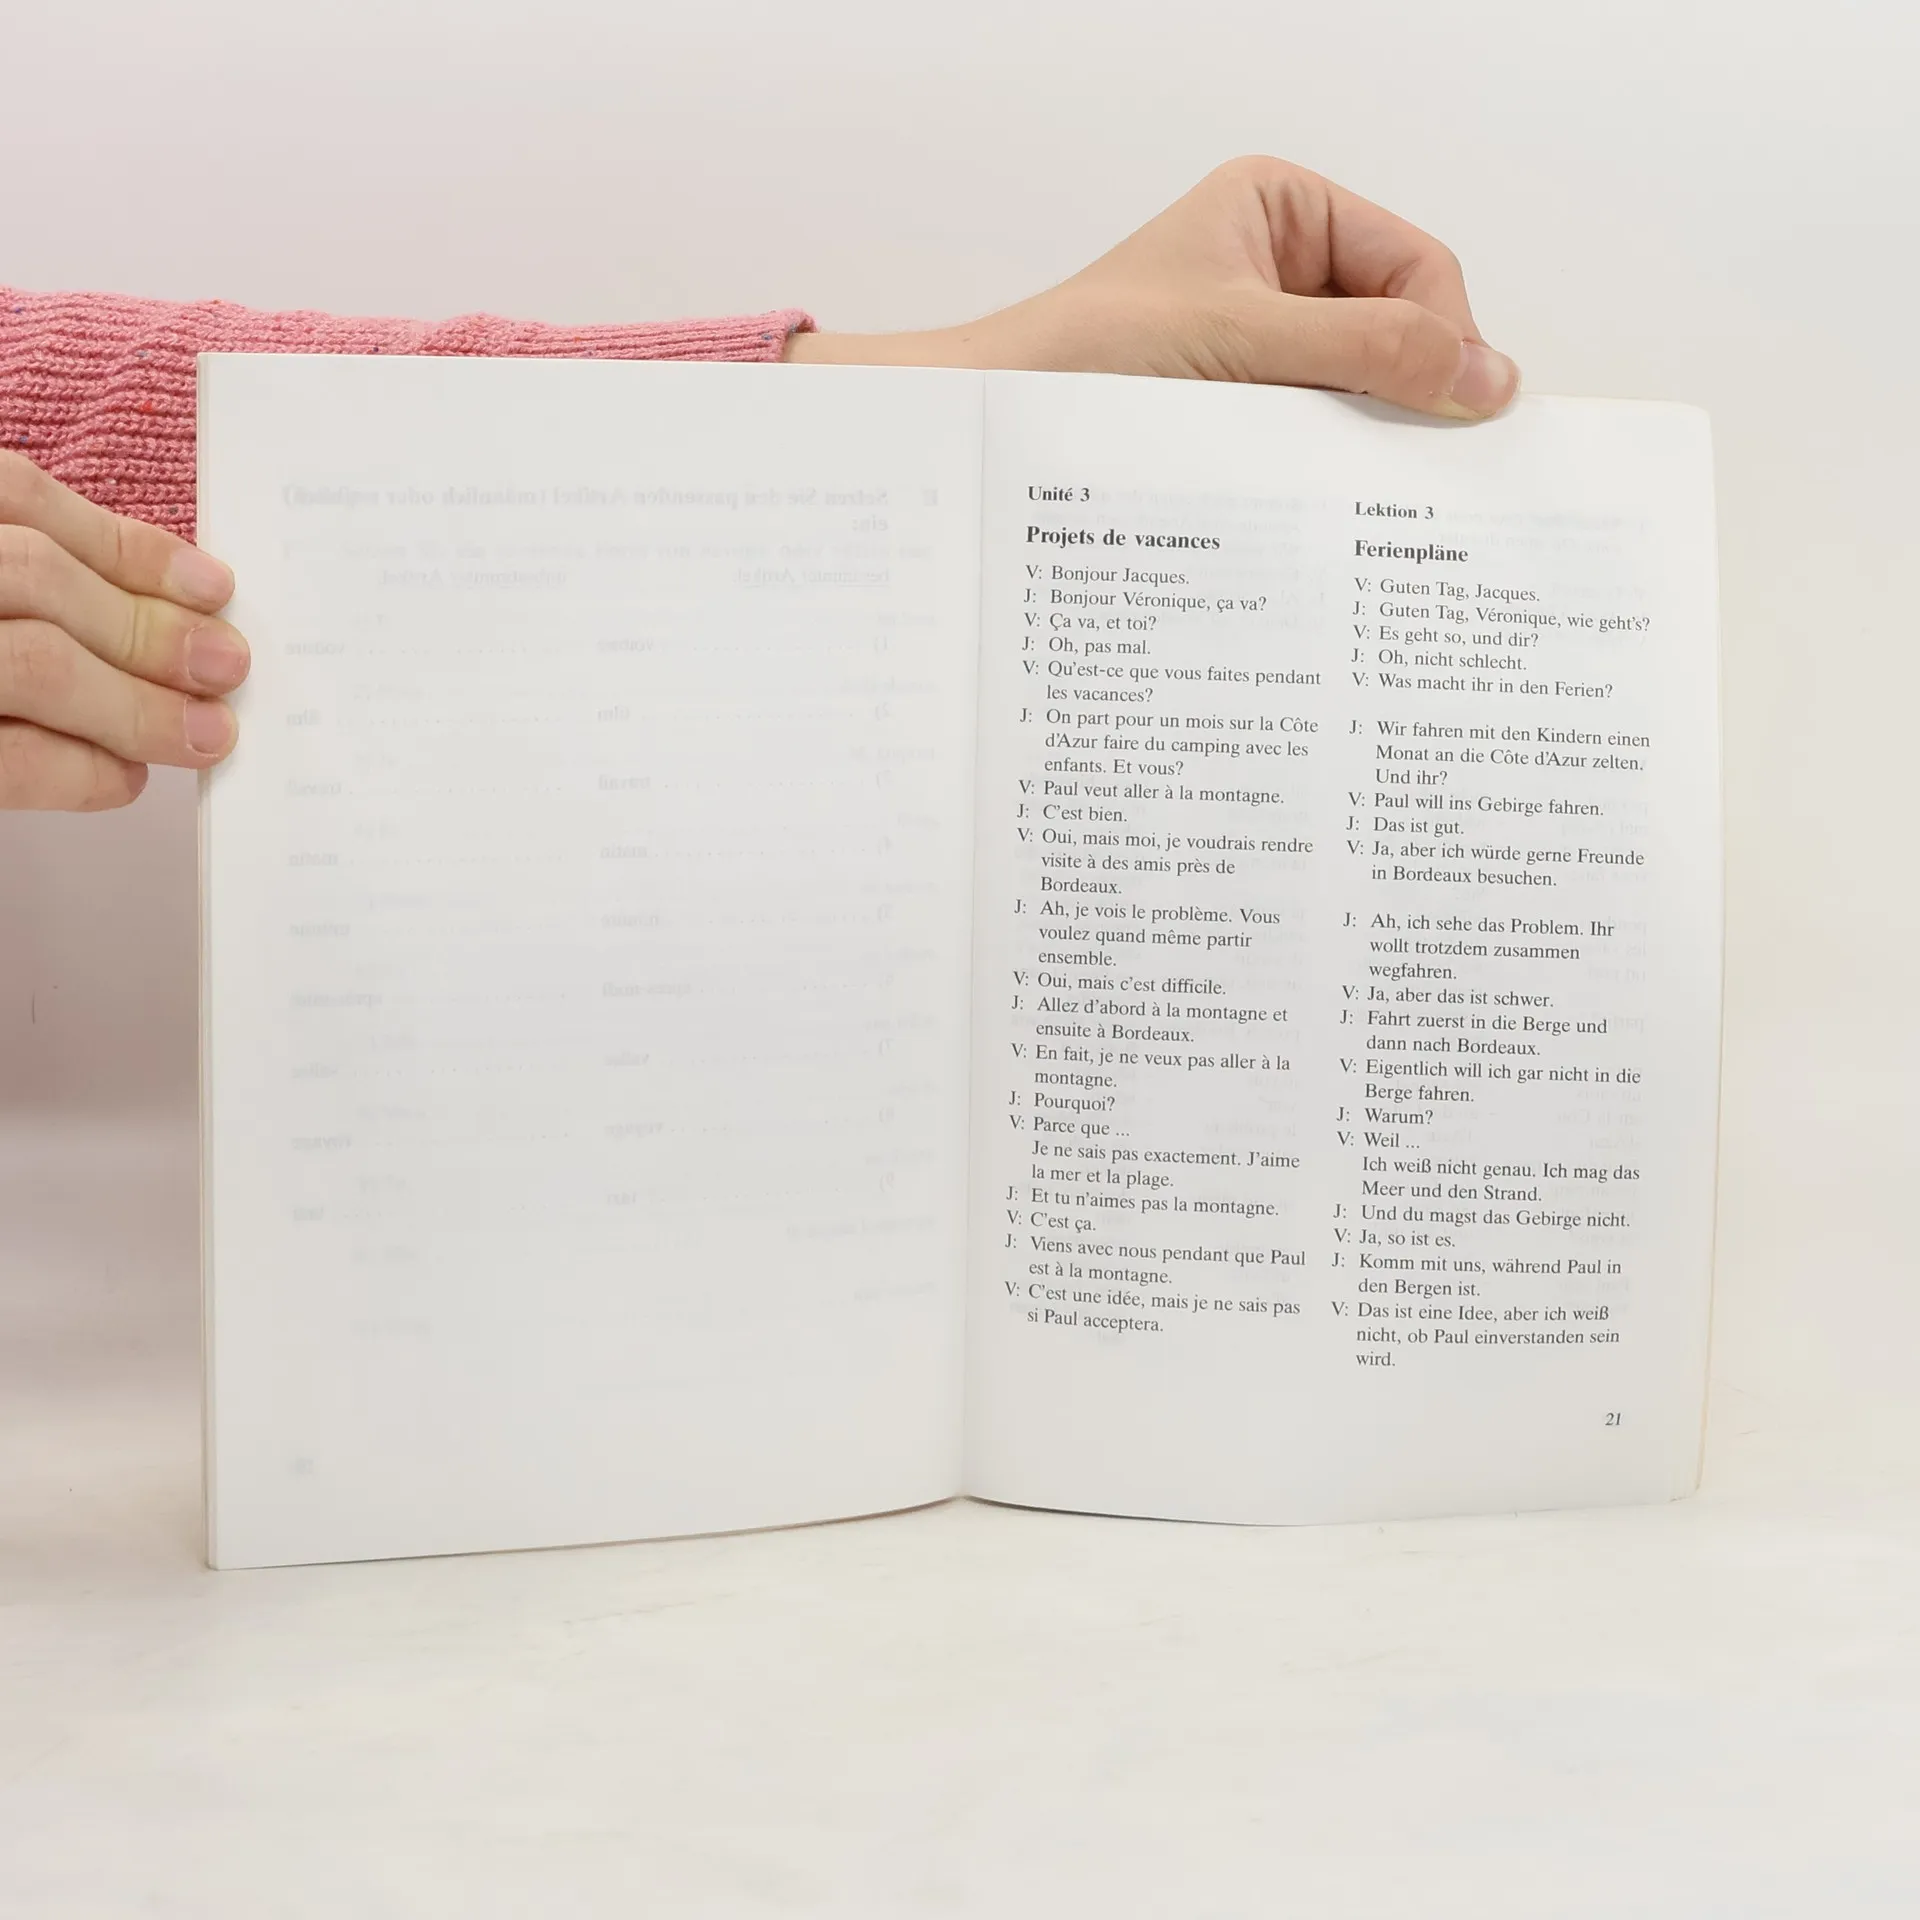 Unité 3
Projets de vacances
V: Bonjour Jacques.
J: Bonjour Véronique, ça va?
V: Ça va, et toi?
J: Oh, pas mal.
V: Qu'est-ce que vous faites pendant
les vacances?
J: On part pour un mois sur la Côte
d'Azur faire du camping avec les
enfants. Et vous?
V: Paul veut aller à la montagne.
J: C'est bien.
V: Oui, mais moi, je voudrais rendre
visite à des amis près de
Bordeaux.
J: Ah, je vois le problème. Vous
voulez quand même partir
ensemble.
V: Oui, mais c'est difficile.
J: Allez d'abord à la montagne et
ensuite à Bordeaux.
V: En fait, je ne veux pas aller à la
montagne.
J: Pourquoi?
V: Parce que ...
Je ne sais pas exactement. J'aime
la mer et la plage.
J: Et tu n'aimes pas la montagne.
V: C'est ça.
J: Viens avec nous pendant que Paul
est à la montagne.
V: C'est une idée, mais je ne sais pas
si Paul acceptera.
Lektion 3
Ferienpläne
V: Guten Tag, Jacques.
J: Guten Tag, Véronique, wie geht's?
V: Es geht so, und dir?
J: Oh, nicht schlecht.
V: Was macht ihr in den Ferien?
J: Wir fahren mit den Kindern einen
Monat an die Côte d'Azur zelten.
Und ihr?
V: Paul will ins Gebirge fahren.
J: Das ist gut.
V: Ja, aber ich würde gerne Freunde
in Bordeaux besuchen.
J: Ah, ich sehe das Problem. Ihr
wollt trotzdem zusammen
wegfahren.
V: Ja, aber das ist schwer.
J: Fahrt zuerst in die Berge und
dann nach Bordeaux.
V: Eigentlich will ich gar nicht in die
Berge fahren.
J: Warum?
V: Weil ...
Ich weiß nicht genau. Ich mag das
Meer und den Strand.
J: Und du magst das Gebirge nicht.
V: Ja, so ist es.
J: Komm mit uns, während Paul in
den Bergen ist.
V: Das ist eine Idee, aber ich weiß
nicht, ob Paul einverstanden sein
wird.
21